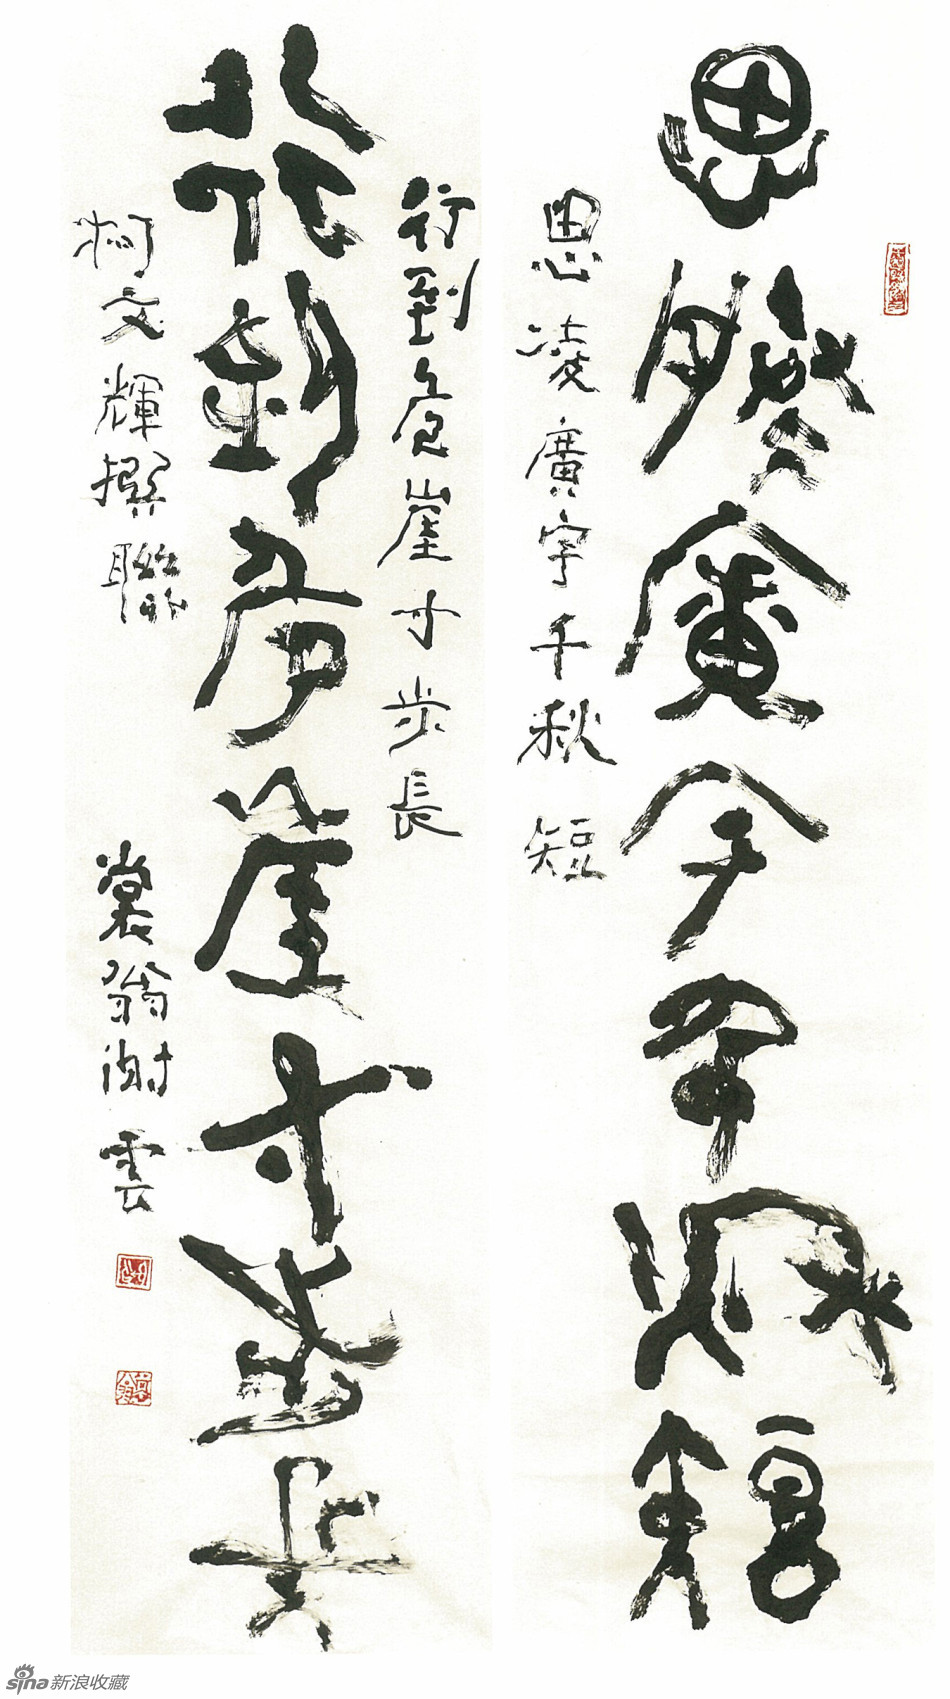 思凌廣宇千秋短
思凌廣宇千秋短
行到危崖寸步長
行到危崖寸步長
柯文輝撰聯
裳翁謝雲
sina新浪收藏